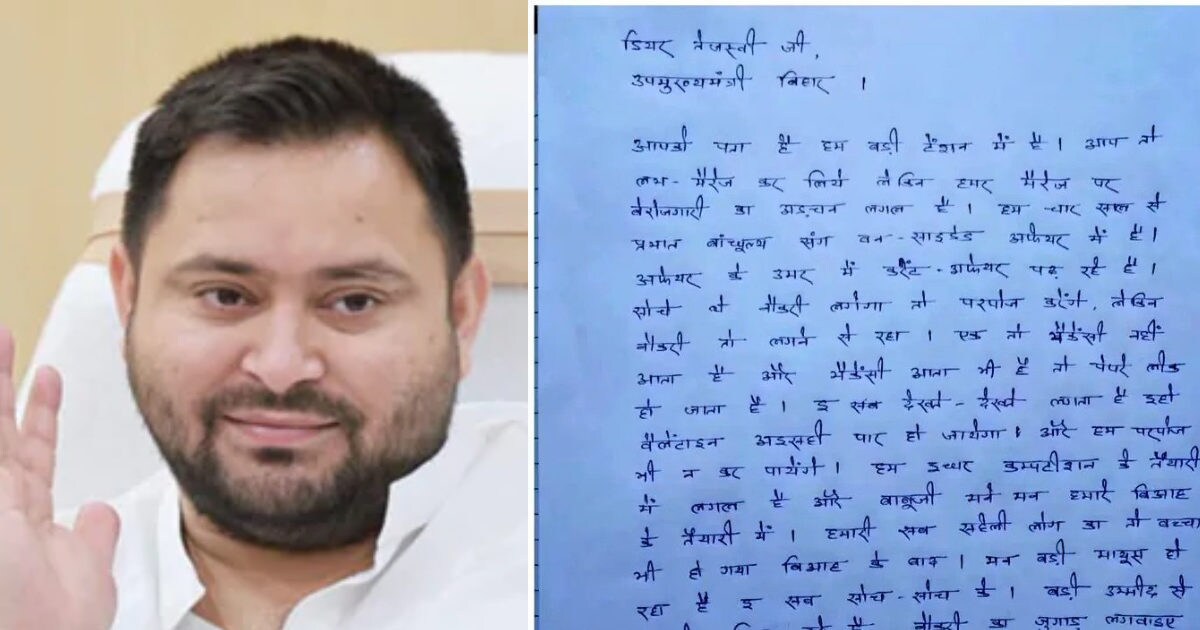 डियर तेजस्वी जी,
उपमुख्यमंत्री बिहार ।
आपको पता है हम बड़ी टेंशन में है । आप तो
लभ - मैरेज कर लिये लेकिन हमर मैरेज पर
बेरोजगारी का अड़चन लगल है । हम चार साल से
प्रभात बांधुल्य संग वन - साइडेड अफेयर में है ।
अफेयर के उमर में करेंट - अफेयर पढ़ रहे है ।
सोचे थे नौकरी लगेगा तो परपोज करेंगे, लेकिन
नौकरी तो लगने से रहा । एक तो भैकेंसी नहीं
आता है और भैकेंसी आता भी है तो पेपरे लीक
हो जाता है । इ सब देखते - देखते लगता है इहो
वैलेंटाइन अइसही पार हो जायेगा । और हम परपोज
भी न कर पायेंगे । हम इधर कम्पटीशन के तैयारी
में लगल है और बाबूजी मने मन हमारे बिआह
के तैयारी में । हमारी सब सहेली लोग का तो बच्चा
भी हो गया बिआह के बाद । मन बड़ी मायूस हो
रहा है इ सब सोच - सोच के । बड़ी उम्मीद से
नौकरी का जुगाड़ लगवाइए